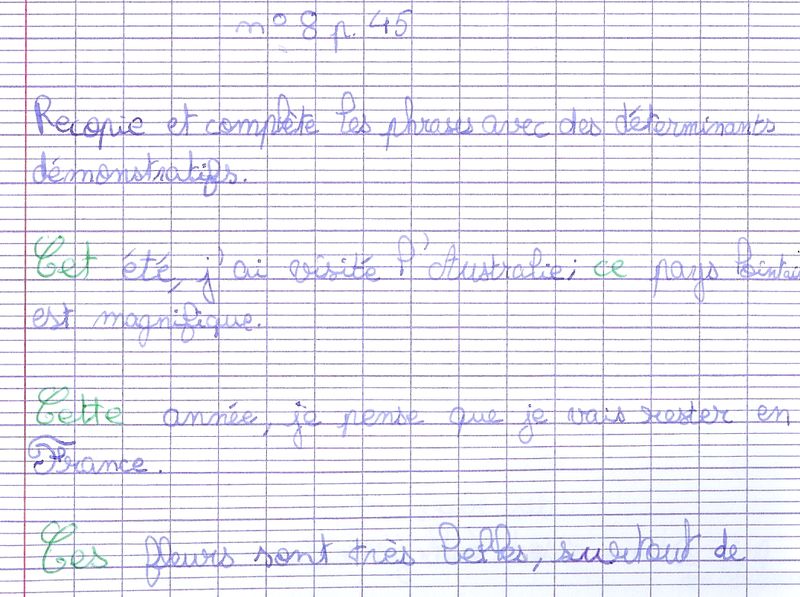 n° 8 p. 45
Recopie et complète les phrases avec des déterminants
démonstratifs.
Cet été, j'ai visité l'Australie; ce pays lointain
est magnifique.
Cette année, je pense que je vais rester en
France.
Ces fleurs sont très belles, surtout de